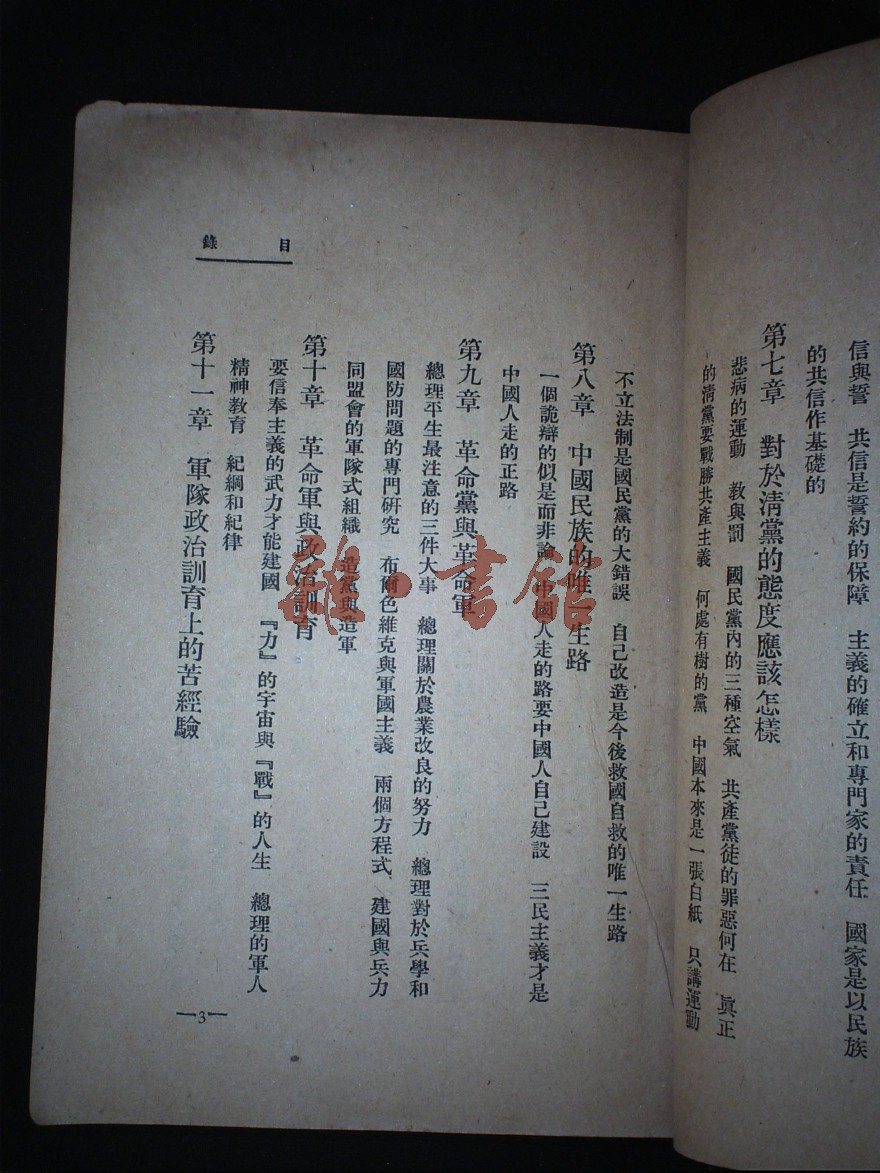 信與誓　共信是誓約的保障　主義的確立和專門家的責任　國家是以民族
的共信作基礎的
第七章　對於淸黨的態度應該怎樣
悲病的運動　敎與罰　國民黨內的三種空氣　共產黨徒的罪惡何在　眞正
的淸黨要戰勝共產主義　何處有樹的黨　中國本來是一張白紙　只講運動
目錄
不立法制是國民黨的大錯誤　自己改造是今後救國自救的唯一生路
第八章　中國民族的唯一生路
一個詭辯的似是而非論　中國人走的路要中國人自己建設　三民主義才是
中國人走的正路
第九章　革命黨與革命軍
總理平生最注意的三件大事　總理關於農業改良的努力　總理對於兵學和
國防問題的專門硏究　布爾色維克與軍國主義　兩個方程式、建國與兵力
同盟會的軍隊式組織　造黨與造軍
第十章　革命軍與政治訓育
要信奉主義的武力才能建國　『力』的宇宙與『戰』的人生　總理的軍人
精神敎育　紀綱和紀律
第十一章　軍隊政治訓育上的苦經驗
—3—
雜·書館